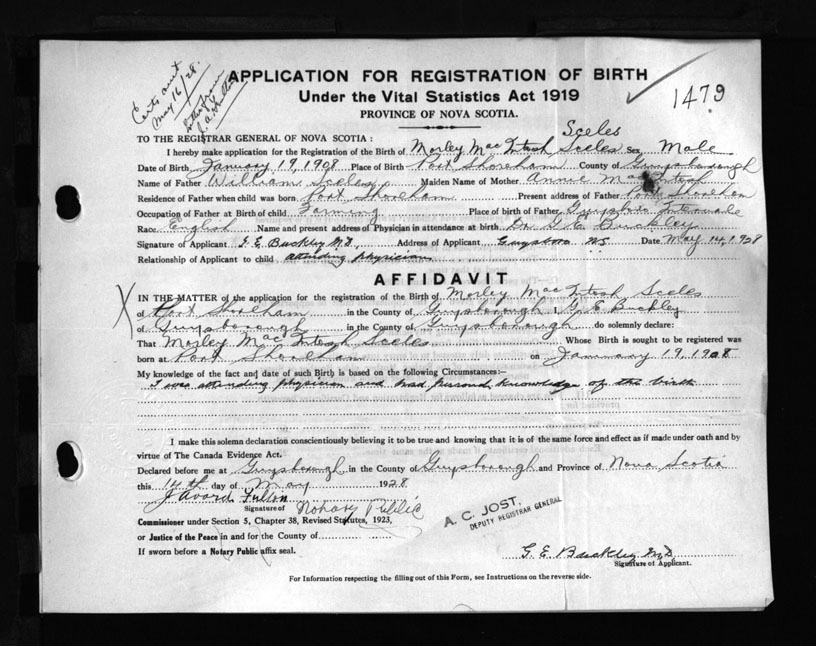 Certs sent
May 16/28.
letter from
APPLICATION FOR REGISTRATION OF BIRTH
Under the Vital Statistics Act 1919
1479
PROVINCE OF NOVA SCOTIA.
TO THE REGISTRAR GENERAL OF NOVA SCOTIA :
Sceles
I hereby make application for the Registration of the Birth of Morley MacIntosh Sceles Sex Male
Date of Birth January 19, 1908 Place of Birth Port Shoreham County of Guysborough
Name of Father William Sceles Maiden Name of Mother Annie MacIntosh
Residence of Father when child was born Port Shoreham Present address of Father Port Shoreham
Occupation of Father at Birth of child Farming Place of birth of Father Guysboro Intervale
Race English Name and present address of Physician in attendance at birth Dr. G E Buckley
Signature of Applicant G. E. Buckley M.D. Address of Applicant Guysboro N.S. Date May 14, 1928
Relationship of Applicant to child attending physician
AFFIDAVIT
X
IN THE MATTER of the application for the registration of the Birth of Morley MacIntosh Sceles
of Port Shoreham in the County of Guysborough I, G. E. Buckley
of Guysborough in the County of Guysborough do solemnly declare:
That Morley MacIntosh Sceles Whose Birth is sought to be registered was
born at Port Shoreham on January 19, 1908
My knowledge of the fact and date of such Birth is based on the following Circumstances:—
I was attending physician and had personal knowledge of the birth
I make this solemn declaration conscientiously believing it to be true and knowing that it is of the same force and effect as if made under oath and by
virtue of The Canada Evidence Act.
Declared before me at Guysborough in the County of Guysborough and Province of Nova Scotia
this 14th day of May 1928
J Avard Fulton
Signature of Notary Public
A. C. JOST,
DEPUTY REGISTRAR GENERAL
Commissioner under Section 5, Chapter 38, Revised Statutes, 1923,
or Justice of the Peace in and for the County of
If sworn before a Notary Public affix seal.
G. E. Buckley M.D.
Signature of Applicant.
For Information respecting the filling out of this Form, see Instructions on the reverse side.